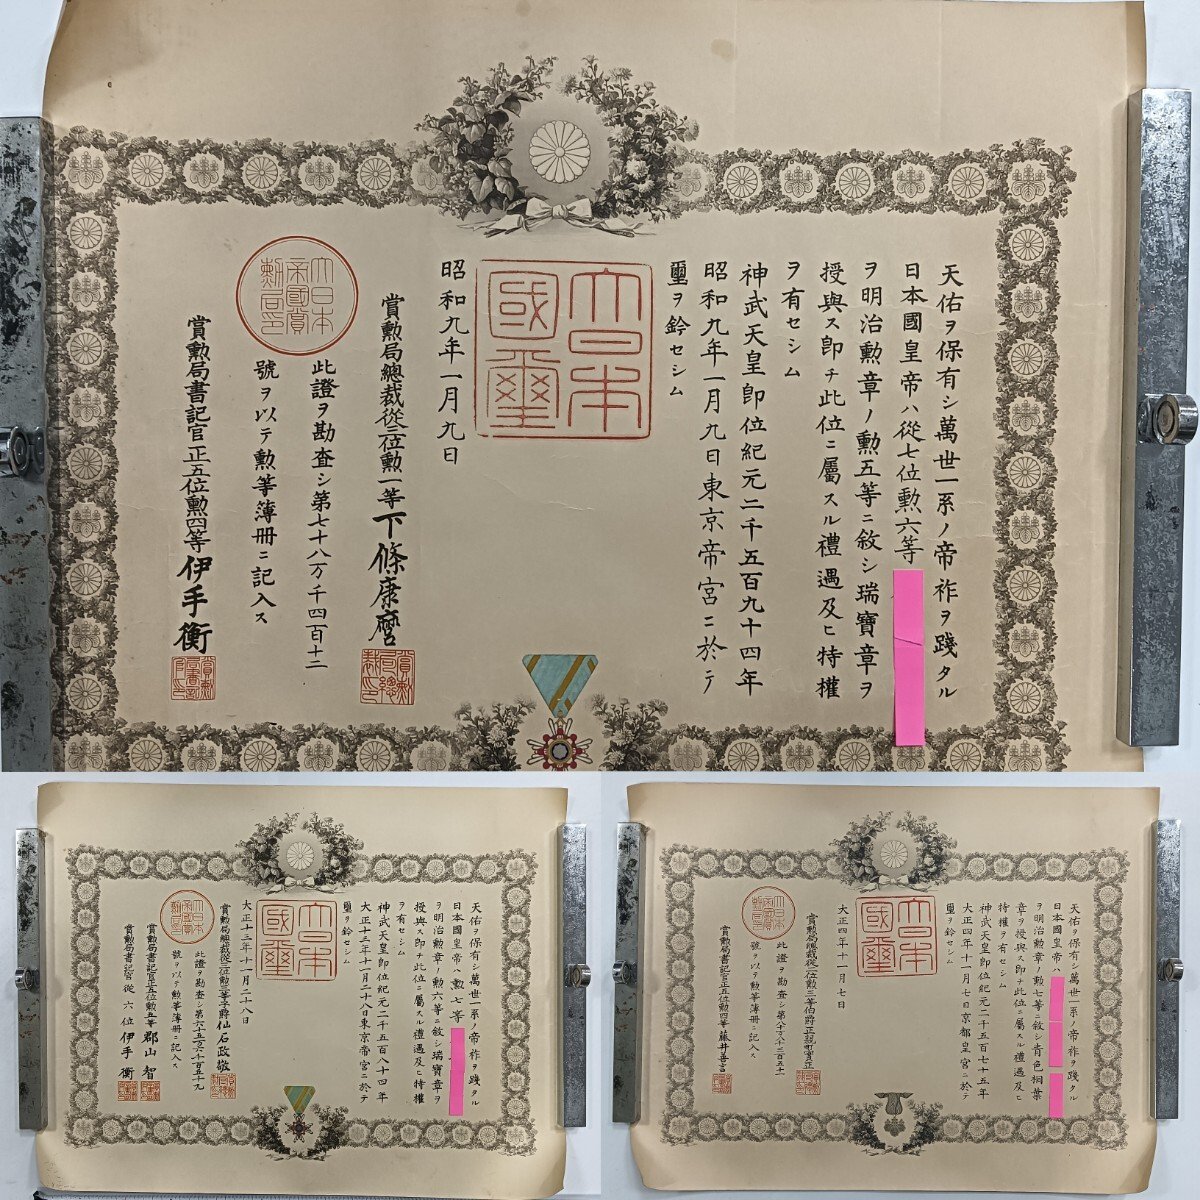 天佑ヲ保有シ萬世一系ノ帝祚ヲ踐タル
日本國皇帝ハ從七位勲六等
ヲ明治勲章ノ勲五等ニ敘シ瑞寶章ヲ
授與ス即チ此位ニ屬スル禮遇及ヒ特權
ヲ有セシム
神武天皇即位紀元二千五百九十四年
昭和九年一月九日東京帝宮ニ於テ
璽ヲ鈐セシム
大日本
國璽
昭和九年一月九日
賞勲局總裁從三位勲一等下條康麿
大日本
帝國賞
勲局印
此證ヲ勘査シ第七十八万千四百十二
號ヲ以テ勲等簿册ニ記入ス
賞勲局書記官正五位勲四等伊手衡
天佑ヲ保有シ萬世一系ノ帝祚ヲ踐タル
日本國皇帝ハ勲七等
ヲ明治勲章ノ勲六等ニ敘シ瑞寶章ヲ
授與ス即チ此位ニ屬スル禮遇及ヒ特權
ヲ有セシム
神武天皇即位紀元二千五百八十四年
大正十三年十一月二十八日東京帝宮ニ於テ
璽ヲ鈐セシム
大日本
國璽
大正十三年十一月二十八日
賞勲局總裁從二位勲二等子爵仙石政敬
大日本
帝國賞
勲局印
此證ヲ勘査シ第六十五万六千百五十九
號ヲ以テ勲等簿册ニ記入ス
賞勲局書記官正五位勲五等郡山智
賞勲局書記官從六位伊手衡
天佑ヲ保有シ萬世一系ノ帝祚ヲ踐タル
日本國皇帝ハ
ヲ明治勲章ノ勲七等ニ敘シ青色桐葉
章ヲ授與ス即チ此位ニ屬スル禮遇及ヒ
特權ヲ有セシム
神武天皇即位紀元二千五百七十五年
大正四年十一月七日京都皇宮ニ於テ
璽ヲ鈐セシム
大日本
國璽
大正四年十一月七日
賞勲局總裁從二位勲二等伯爵正親町實正
大日本
帝國賞
勲局印
此證ヲ勘査シ
號ヲ以テ勲等簿册ニ記入ス
賞勲局書記官正五位勲四等藤井善言